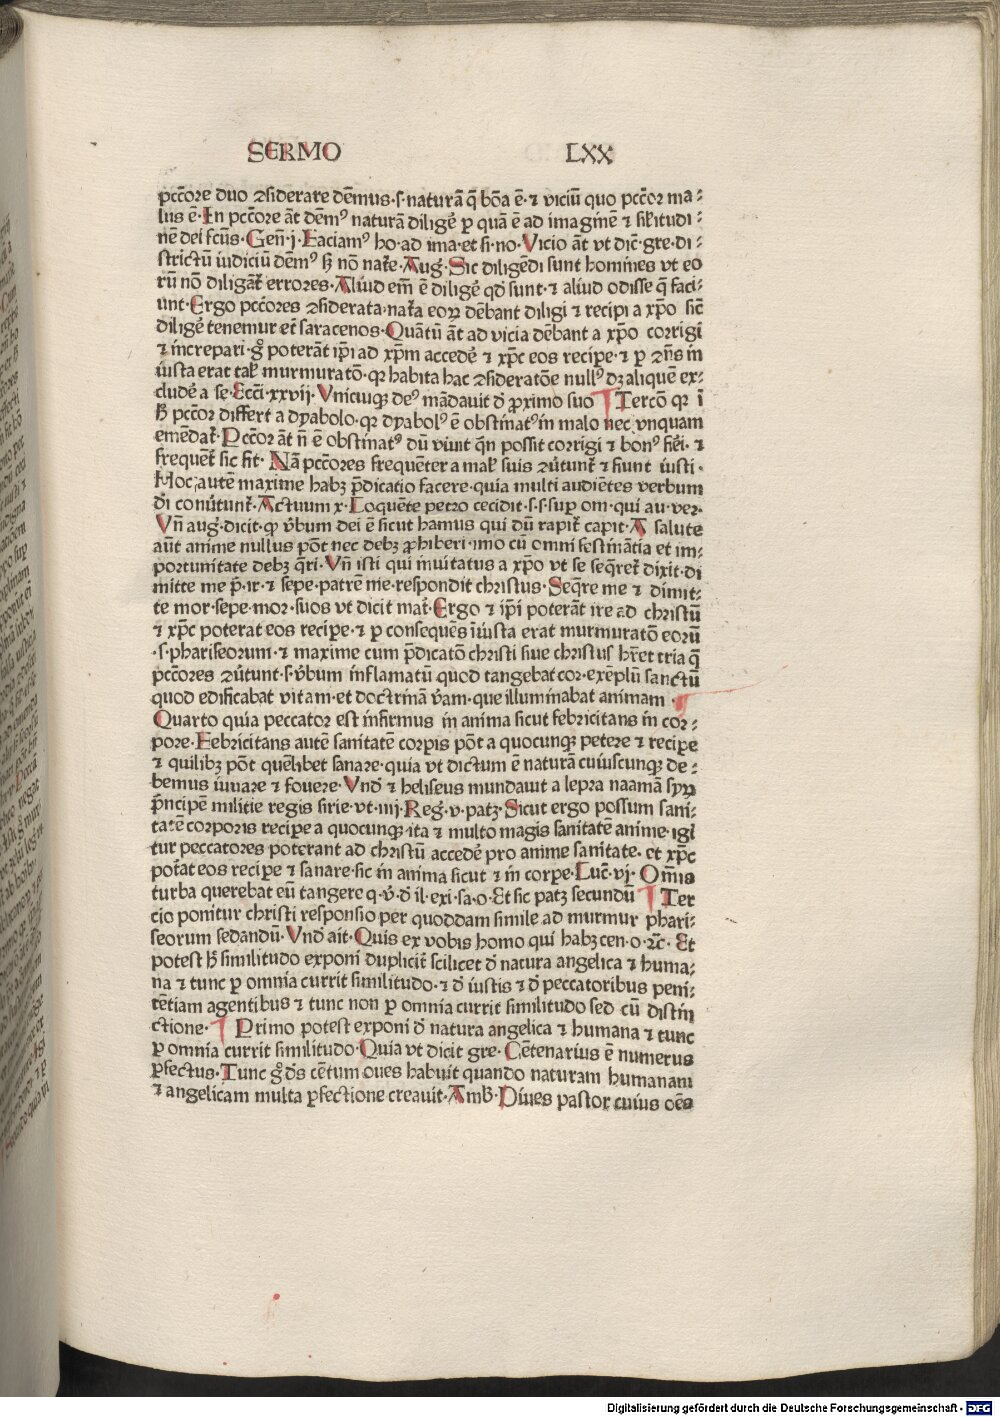 SERMO LXX
pctōre duo ↄsiderare dēmus·s·naturā q̄ bōa ē·⁊ viciū quo pctōr ma⸗
lus ē·In pctōre āt dēmꝰ naturā diligē p quā ē ad imaginē ⁊ silitudi⸗
nē dei fctūs·Gen̄·j·Faciamꝰ ho·ad ima·et si·no·Vicio āt vt dic̄·gre·di⸗
strictū iudiciū dēmꝰ sꝫ nō nat̄e·Auḡ·Sic diligēdi sunt homines vt eo
rū nō diligāt̄ errores·Aliud em̄ ē diligē qd̄ sunt·⁊ aliud odisse q̄ faci⸗
unt·Ergo pctōres ↄsiderata·nat̄a eoꝝ dēbant diligi ⁊ recipi a xp̄o sic̄
diligē tenemur et̄ saracenos·Quātū āt ad vicia dēbant a xp̄o corrigi
⁊ increpari·gͦ poterāt ip̄i ad xp̄m accedē ⁊ xp̄c eos recipe·⁊ p ↄn̄s in
iusta erat tal̄ murmuratō·qꝛ habita hac ↄsideratōe nullꝰ dꝫ aliquē ex⸗
cludē a se·Ecci·xxvij·Vnicuiqꝫ deꝰ mādauit d̄ ꝓximo suo ¶ Tercō qꝛ ī
h̄ pctōr differt a dyabolo·qꝛ dyabolꝰ ē obstinatꝰ in malo nec vnquam
emēdat̄·Pctōr āt n̄ ē obstinatꝰ dū viuit qn̄ possit corrigi ⁊ bonꝰ fiēi·⁊
frequēt̄ sic fit·Nā pctōres frequēter a mal̄ suis ↄūtunt̄ ⁊ fiunt iusti·
Hoc autē maxime habꝫ p̄dicatio facere·quia multi audiētes verbum
dī conūtunt̄·Actuum x·Loquēte petro cecidit·s·s·sup om·qui au·ver·
Vn̄ aug·dicit·ꝙ v̄bum dei ē sicut hamus qui dū rapit̄ capit·A salute
aūt anime nullus pōt nec debꝫ ꝓhiberi·imo cū omni festinātia et im⸗
portunitate debꝫ q̄ri·Vn̄ isti qui inuitatus a xp̄o vt se seq̄ret̄ dixit·di
mitte me p̄·ir·⁊ sepe·patrē me·respondit christus·Seq̄re me ⁊ dimit⸗
te mor·sepe·mor·suos vt dicit mat̄·Ergo ⁊ ip̄i poterāt ire ad christū
⁊ xp̄c poterat eos recipe·⁊ p consequēs īiusta erat murmuratō eorū
·s·phariseorum·⁊ maxime cum p̄dicatō christi siue christus hr̄et tria q̄
pctōres ↄūtunt·s·v̄bum inflamatū quod tangebat cor·exēplū sanctū
quod edificabat vitam·et doctrinā v̄am·que illuminabat animam ·¶
Quarto quia peccator est infirmus in anima sicut febricitans in cor⸗
pore·Febricitans autē sanitatē corpis pōt a quocunqꝫ petere ⁊ recipe
⁊ quilibꝫ pōt quēlibet sanare·quia vt dictum ē naturā cuiuscunqꝫ de⸗
bemus iuuare ⁊ fouere·Vnd̄ ⁊ heliseus mundauit a lepra naamā syꝝ
p̄ncipē militie regis sirie·vt·iiij·Reḡ·v·patꝫ·Sicut ergo possum sani⸗
tatē corporis recipe a quocunqꝫ·ita ⁊ multo magis sanitatē anime·igi
tur peccatores poterant ad christū accedē pro anime sanitate· et xp̄c
pot̄at eos recipe ⁊ sanare·sic in anima sicut ⁊ in corpe·Luc̄·vj·Om̄is
turba querebat eū tangere q·v̄·d̄ il·exi·sa·o·Et sic patꝫ secundū ¶ Ter
cio ponitur christi responsio per quoddam simile ad murmur phari⸗
seorum sedandū·Vnd̄ ait·Quis ex vobis homo qui habꝫ cen·o·⁊c̄· Et
potest h̄ similitudo exponi duplicit̄ scilicet d̄ natura angelica ⁊ huma⸗
na ⁊ tunc p omnia currit similitudo·⁊ d̄ iustis ⁊ d̄ peccatoribus peni⸗
tētiam agentibus ⁊ tunc non p omnia currit similitudo sed cū distin
ctione· ¶ Primo potest exponi d̄ natura angelica ⁊ humana ⁊ tunc
p omnia currit similitudo·Quia vt dicit gre·Cētenarius ē numerus
pfectus·Tunc gͦ dn̄s cētum oues habuit quando naturam humanam
⁊ angelicam multa pfectione creauit·Amb̄·Diues pastor cuius oēs
Digitalisierung gefördert durch die Deutsche Forschungsgemeinschaft - DFG